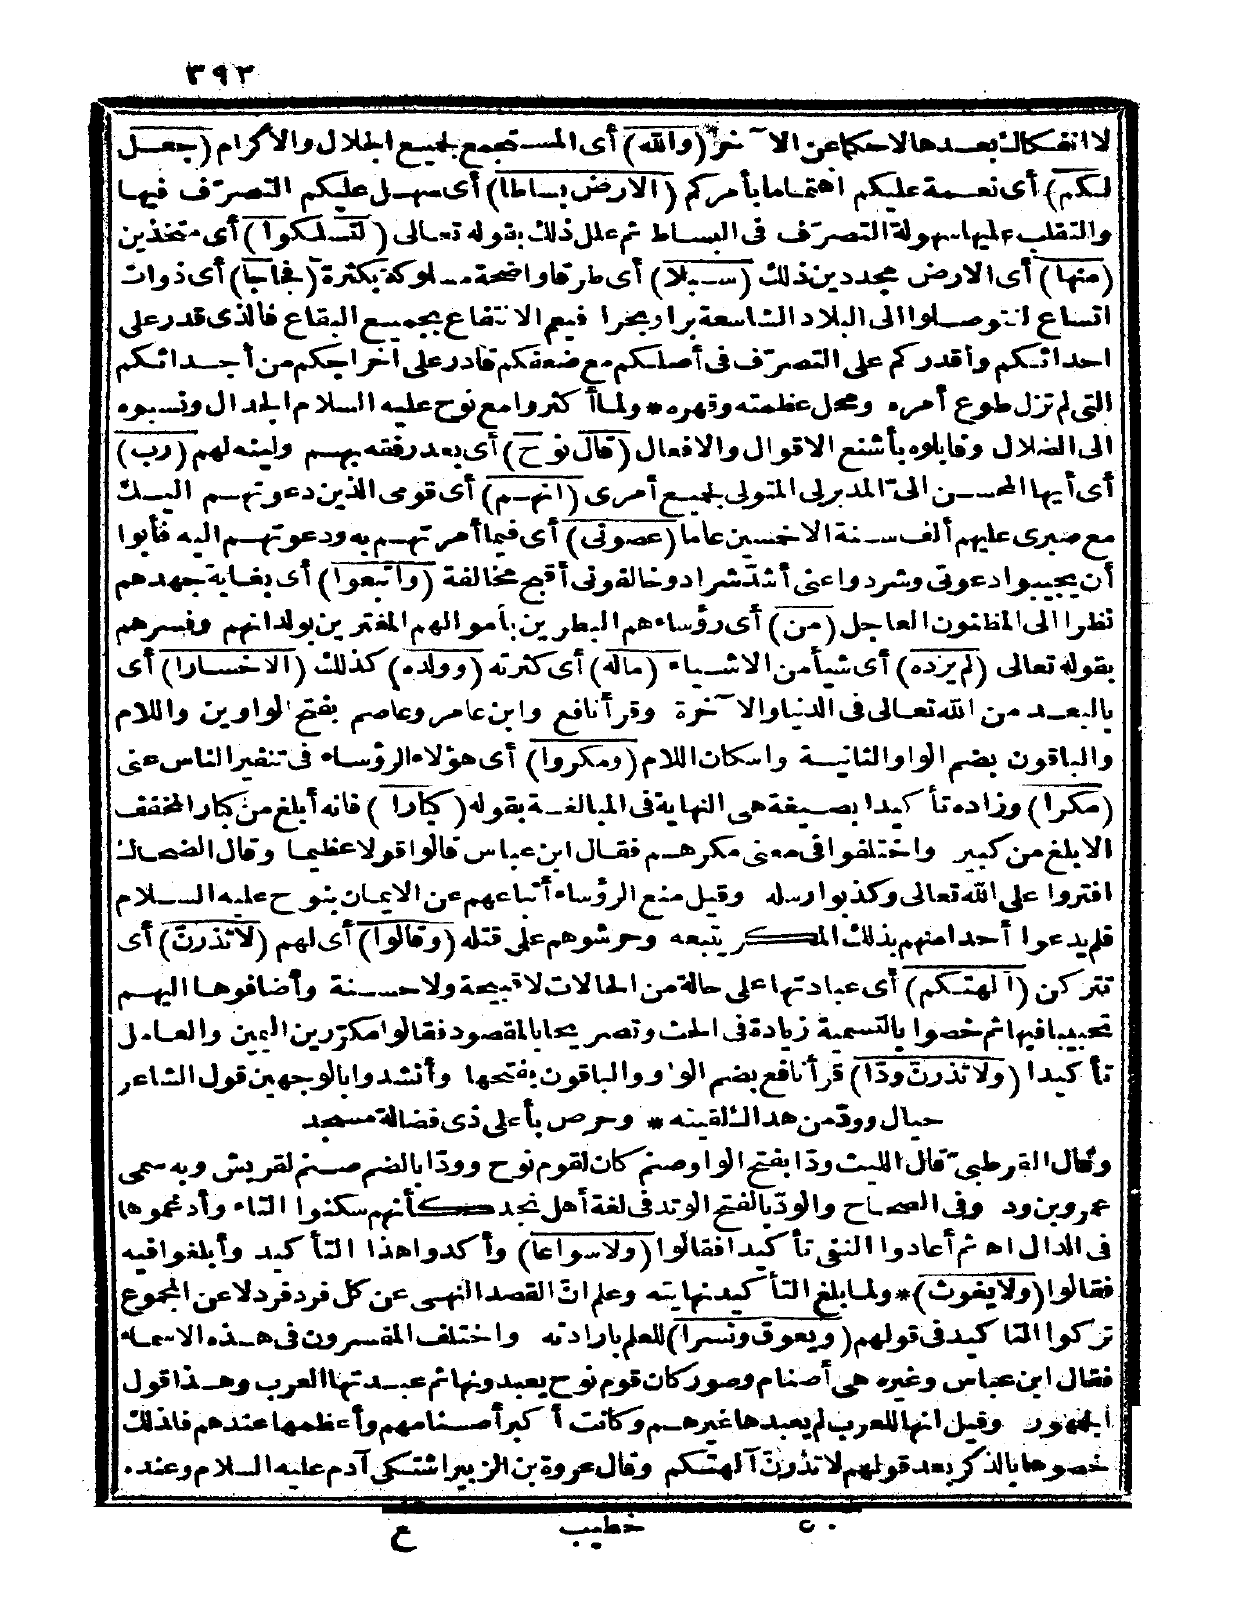 ٣٩٣
لا انفكاك بعدها لاحدكما عن الآخر (والله) أى المستجمع لجميع الجلال والاكرام (جعل
لكم) أى نعمة عليكم اهتماما بأمركم (الارض بساطا) أى سهل عليكم التصرّف فيها
والتقلب عليها سهولة التصرّف فى البساط ثم علل ذلك بقوله تعالى (لتسلكوا) أى متخذين
(منها) أى الارض مجددين ذلك (سبلا) أى طرقا واضحة مسلوكة بكثرة (فجاجا) أى ذوات
اتساع لتتوصلوا الى البلاد الشاسعة برا وبحرا فيعم الانتفاع بجميع البقاع فالذى قدر على
احداثكم وأقدركم على التصرّف فى أصلكم مع ضعفكم قادر على اخراجكم من أجداثكم
التى لم تزل طوع أمره ومحل عظمته وقهره * ولما أكثروا مع نوح عليه السلام الجدال ونسبوه
الى الضلال وقابلوه بأشنع الاقوال والافعال (قال نوح) أى بعد رفقه بهم ولينه لهم (رب)
أى أيها المحسن الىّ المدبر لى المتولى لجميع أمرى (انهم) أى قومى الذين دعوتهم اليك
مع صبرى عليهم ألف سنة الا خمسين عاما (عصونى) أى فيما أمرتهم به ودعوتهم اليه فأبوا
أن يجيبوا دعوتى وشردوا عنى أشدّ شراد وخالفونى أقبح مخالفة (واتبعوا) أى بغاية جهدهم
نظرا الى المظنون العاجل (من) أى رؤساءهم البطرين بأموالهم المغترين بولدانهم وفسرهم
بقوله تعالى (لم يزده) أى شيأ من الاشياء (ماله) أى كثرته (وولده) كذلك (الا خسارا) أى
بالبعد من الله تعالى فى الدنيا والآخرة وقرأ نافع وابن عامر وعاصم بفتح الواوين واللام
والباقون بضم الواو الثانية واسكان اللام (ومكروا) أى هؤلاء الرؤساء فى تنفير الناس عنى
(مكرا) وزاده تأكيدا بصيغة هى النهاية فى المبالغة بقوله (كبارا) فانه أبلغ من كبار المخفف
الابلغ من كبير واختلفوا فى معنى مكرهم فقال ابن عباس قالوا قولا عظيما وقال الضحاك
افتروا على الله تعالى وكذبوا رسله وقيل منع الرؤساء أتباعهم عن الايمان بنوح عليه السلام
فلم يدعوا أحدا منهم بذلك المكر يتبعه وحرشوهم على قتله (وقالوا) أى لهم (لا تذرنّ) أى
تتركن (آلهتكم) أى عبادتها على حالة من الحالات لا قبيحة ولا حسنة وأضافوها اليهم
تحبيبا فيها ثم خصوا بالتسمية زيادة فى الحث وتصريحا بالمقصود فقالوا مكرّرين اليمين والعامل
تأكيدا (ولا تذرنّ ودّا) قرأ نافع بضم الواو والباقون بفتحها وأنشدوا بالوجهين قول الشاعر
حيال وودّ من هداك لقيته * وحرص بأعلى ذى فضالة مسجد
وقال القرطبىّ قال الليث ودّا بفتح الواو صنم كان لقوم نوح وودّا بالضم صنم لقريش وبه سمى
عمرو بن ود وفى الصحاح والودّ بالفتح الوتد فى لغة أهل نجد كأنهم سكنوا التاء وأدغموها
فى الدال اه ثم أعادوا النفى تأكيدا فقالوا (ولا سواعا) وأكدوا هذا التأكيد وأبلغوا فيه
فقالوا (ولا يغوث) * ولما بلغ التأكيد نهايته وعلم انّ القصد النهى عن كل فرد فرد لا عن المجموع
تركوا التأكيد فى قولهم (ويعوق ونسرا) للعلم بارادته واختلف المفسرون فى هذه الاسماء
فقال ابن عباس وغيره هى أصنام وصور كان قوم نوح يعبدونها ثم عبدتها العرب وهذا قول
الجمهور وقيل انها للعرب لم يعبدها غيرهم وكانت أكبر أصنامهم وأعظمها عندهم فلذلك
خصوها بالذكر بعد قولهم لا تذرنّ آلهتكم وقال عروة بن الزبير اشتكى آدم عليه السلام وعنده
٥٠ خطيب ع